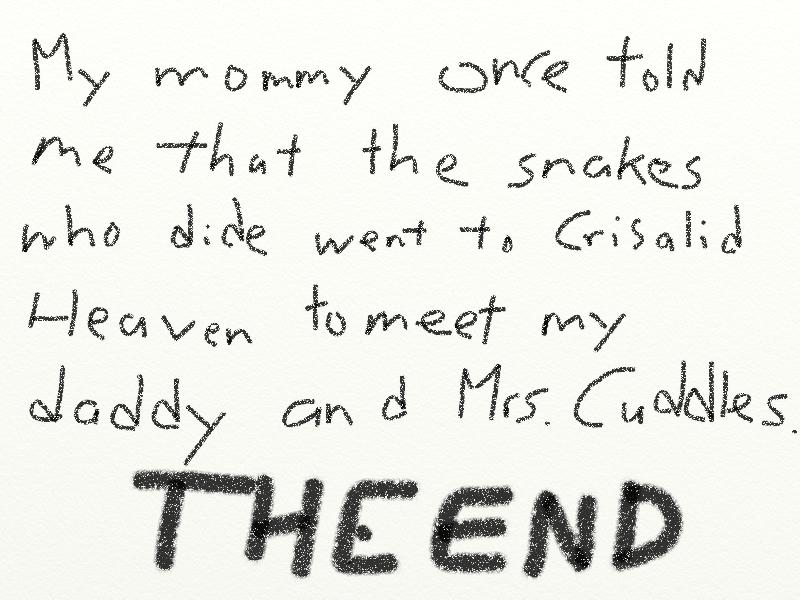 My mommy once told
me that the snakes
who dide went to Crisalid
Heaven to meet my
daddy and Mrs. Cuddles.
THE END